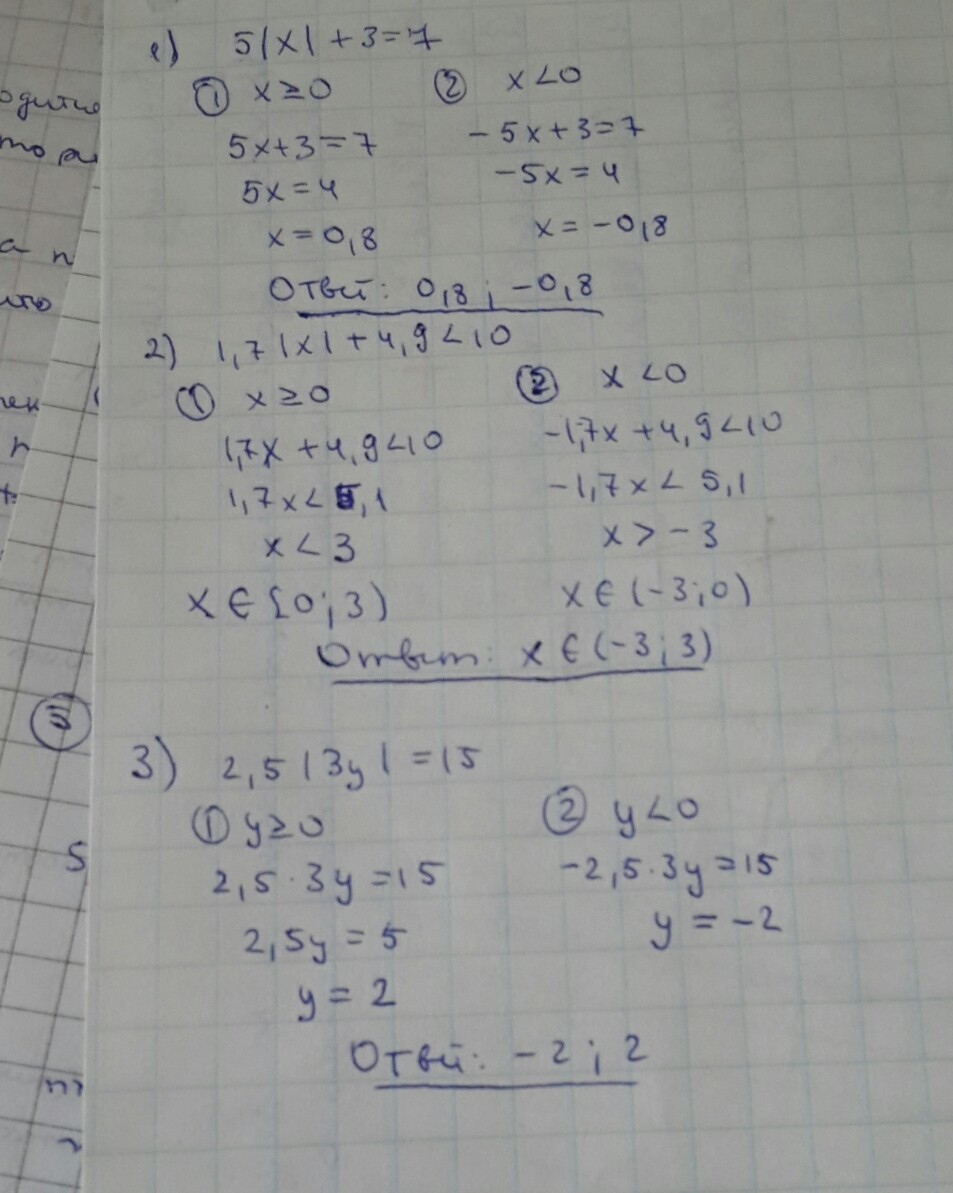 1) 5|x| + 3 = 7
① x ≥ 0
5x + 3 = 7
5x = 4
x = 0,8
② x < 0
- 5x + 3 = 7
-5x = 4
x = -0,8
Ответ: 0,8 ; -0,8
2) 1,7|x| + 4,9 < 10
① x ≥ 0
1,7x + 4,9 < 10
1,7x < 5,1
x < 3
x ∈ [0; 3)
② x < 0
-1,7x + 4,9 < 10
-1,7x < 5,1
x > -3
x ∈ (-3; 0)
Ответ: x ∈ (-3; 3)
3) 2,5 |3y| = 15
① y ≥ 0
2,5 · 3y = 15
2,5y = 5
y = 2
② y < 0
-2,5 · 3y = 15
y = -2
Ответ: -2 ; 2